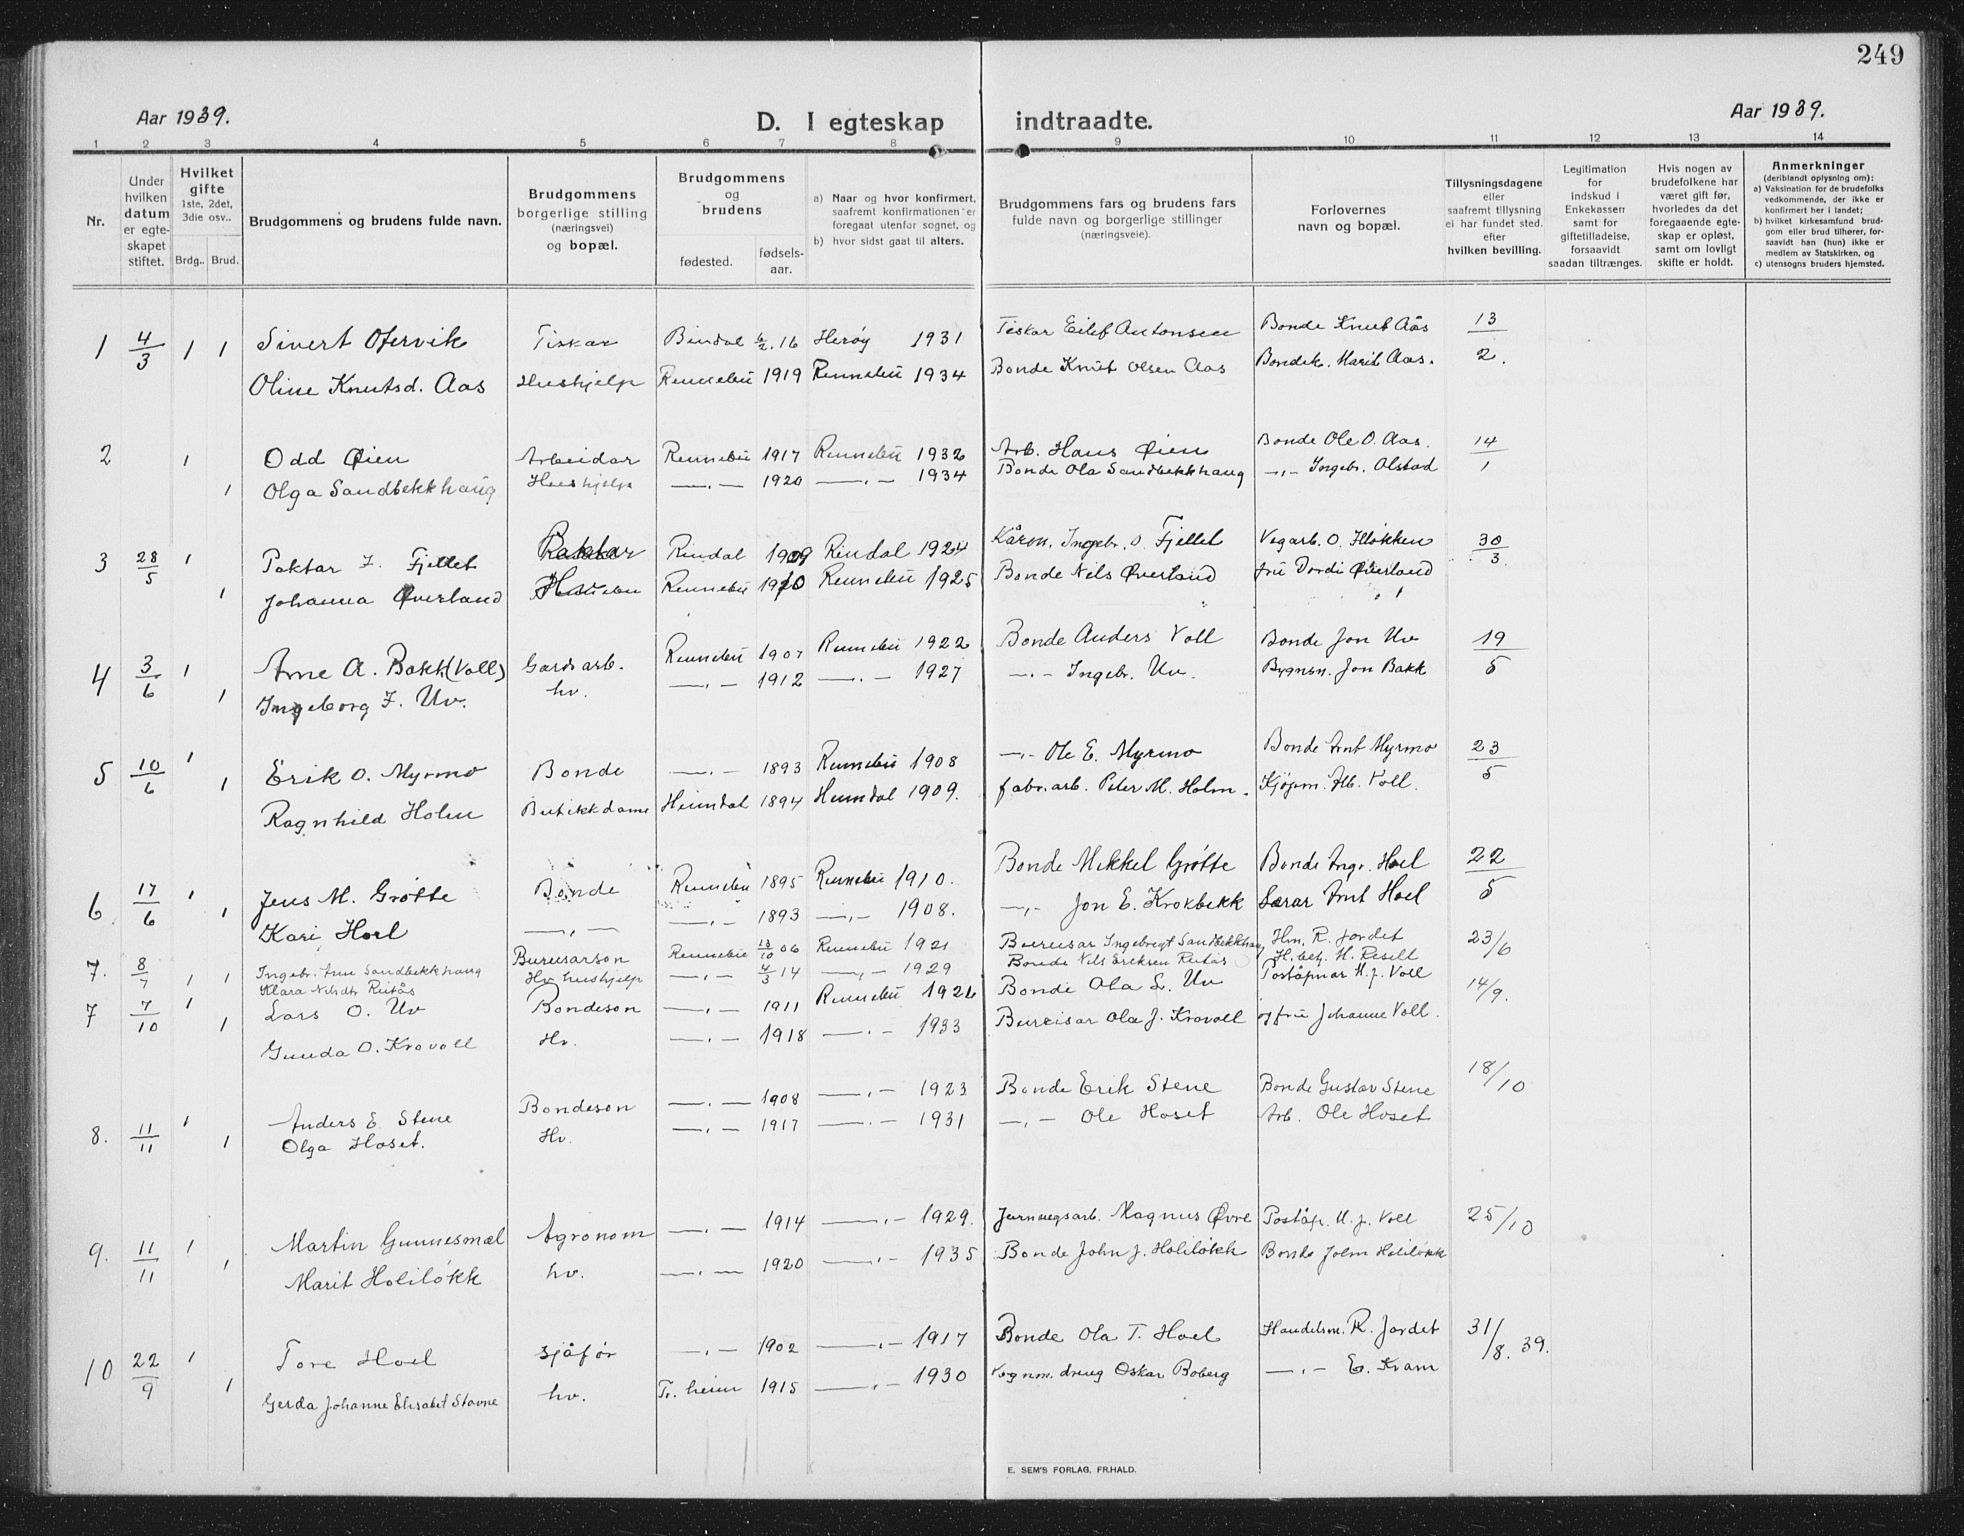 249
Aar 1939.
D. I egteskap indtraadte.
Aar 1939.
1 2 3 4 5 6 7 8 9 10 11 12 13 14
Nr.
Under hvilken datum er egteskapet stiftet.
Hvilket gifte 1ste, 2det, 3die osv..
Brdg.. Brud.
Brudgommens og brudens fulde navn.
Brudgommens borgerlige stilling (næringsvei) og bopæl.
Brudgommens og brudens
fødested.
fødsels-aar.
a) Naar og hvor konfirmert, saafremt konfirmationen er foregaat utenfor sognet, og
b) hvor sidst gaat til alters.
Brudgommens fars og brudens fars fulde navn og borgerlige stillinger (næringsveie).
Forlovernes navn og bopæl.
Tillysningsdagene eller saafremt tillysning ei har fundet sted, efter hvilken bevilling.
Legitimation for indskud i Enkekassen samt for giftetilladelse, forsaavidt saadan tiltrænges.
Hvis nogen av brudefolkene har været gift før, hvorledes da det foregaaende egteskap er opløst, samt om lovligt skifte er holdt.
Anmerkninger (deriblandt oplysning om):
a) Vaksination for de brudefolks vedkommende, der ikke er konfirmert her i landet;
b) hvilket kirkesamfund brudgom eller brud tilhører, forsaavidt han (hun) ikke er medlem av Statskirken, og
c) utensogns bruders hjemsted.
1 4/3 1 1 Sivert Ofervik Fiskar Bindal 6/2.16 Herøy 1931 Fiskar Eilef Antonsen Bonde Knut Aas 13/2.
Oline Knutsd. Aas Hushjelp Rennebu 1919 Rennebu 1934 Bonde Knut Olsen Aas Bondek. Marit Aas.
2 1 Odd Øien Arbeidar Rennebu 1917 Rennebu 1932 Arb. Hans Øien Bonde Ole O. Aas. 14/1
1 Olga Sandbekkhaug Hushjelp —„— 1920 —„— 1934 Bonde Ola Sandbekkhaug —„— Ingebr. Olstad
3 28/5 1 Paktar I. Fjellet Rindal 1909 Rindal 1924 Ingebr. O. Fjellet Vegarb. O. Hløkken 30/3.
1 Johanna Øverland Rennebu 1910 Rennebu 1925 Bonde Nils Øverland fru Dordi Øverland
4 3/6 1 Arne A. Bakk (Voll) Gardsarb. Rennebu 1907 Rennebu 1922 Bonde Anders Voll Bonde Jon Uv 19/5
1 Ingeborg J. Uv. hv. —„— 1912 —„— 1927 —„— Ingebr. Uv. Bygnsn. Jon Bakk
5 10/6 1 Erik O. Myrmo Bonde —„— 1893 Rennebu 1908 —„— Ole E. Myrmo Bonde Arnt Myrmo 23/5
1 Ragnhild Holm Butikkdame Heimdal 1894 Heimdal 1909. fabr.arb. Peter M. Holm. Kjøpm. Voll.
6 17/6 1 Jens M. Grøtte Bonde Rennebu 1895 Rennebu 1910. Bonde Mikkel Grøtte Bonde Ingr. Hoel 22/5
1 Kari Hoel —„— —„— 1893 —„— 1908. —„— Jon E. Krokbekk Lærar Arnt Hoel
7. 8/7 1 1 Ingebr. Arn Sandbekkhaug Bureisarson Rennebu 13/10 06 Rennebu 1921 Bureisar Ingebrigt Sandbekkhaug Hm. R. Jordet 23/6
Klara Nilsdtr Reitås Hv hushjelp —„— 4/3 14 —„— 1929 Bonde Nils Eriksen Reitås H. betj. H. Resell
7 7/10 1 Lars O. Uv Bondeson —„— 1911 Rennebu 1926 Bonde Ola L. Uv Poståpnar M. J. Voll 14/9.
1 Gunda O. Krovoll Hv. —„— 1918 —„— 1933 Bureisar Ola J. Krovoll og fru Johanne Voll.
8. 11/11 1 Anders E. Stene Bondeson —„— 1908 —„— 1923 Bonde Erik Stene Bonde Gustav Stene 18/10
1 Olga Hoset. Hv. —„— 1917 —„— 1931 —„— Ole Hoset Arb. Ole Hoset
9. 11/11 1 Martin Gunnesmæl Agronom —„— 1914 —„— 1929. Jernvegsarb. Magnus Øvre Poståp. M. J. Voll 25/10
1 Marit Holiløkk hv. —„— 1920 —„— 1935 Bonde John J. Holiløkk Bonde John Holiløkk
10 22/9 1 Tore Hoel sjåfør —„— 1902 —„— 1917 Bonde Ola T. Hoel Handelsm. R. Jordet 31/8. 39.
1 Gerda Johanne Elisabet Stavne hv. Tr.heim 1915 —„— 1930 Oskar Boberg —„— E. Kvam
E. SEM'S FORLAG, FR.HALD.